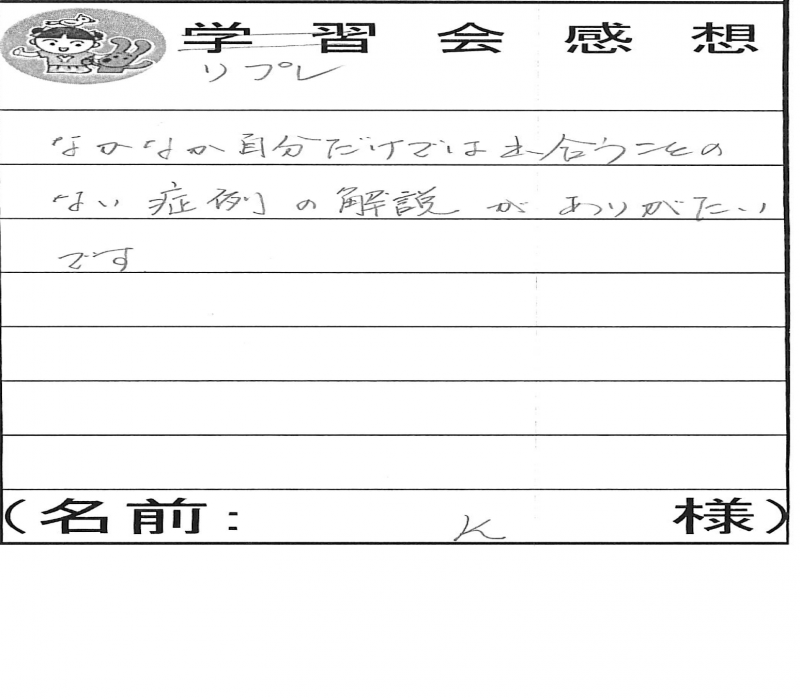 学習会感想
リプレ
なかなか自分だけでは出合うことの
ない症例の解説がありがたい
です
(名前: K 様)